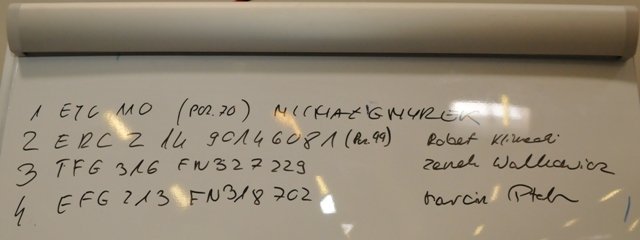 1 ETC 110 (POZ.70) MICHAŁ GMYREK
2 ERC Z 14 90146081 (Poz.99) Robert
3 TFG 316 FN327229 Zenek Walkowicz
4 EFG 213 FN318702 Marcin